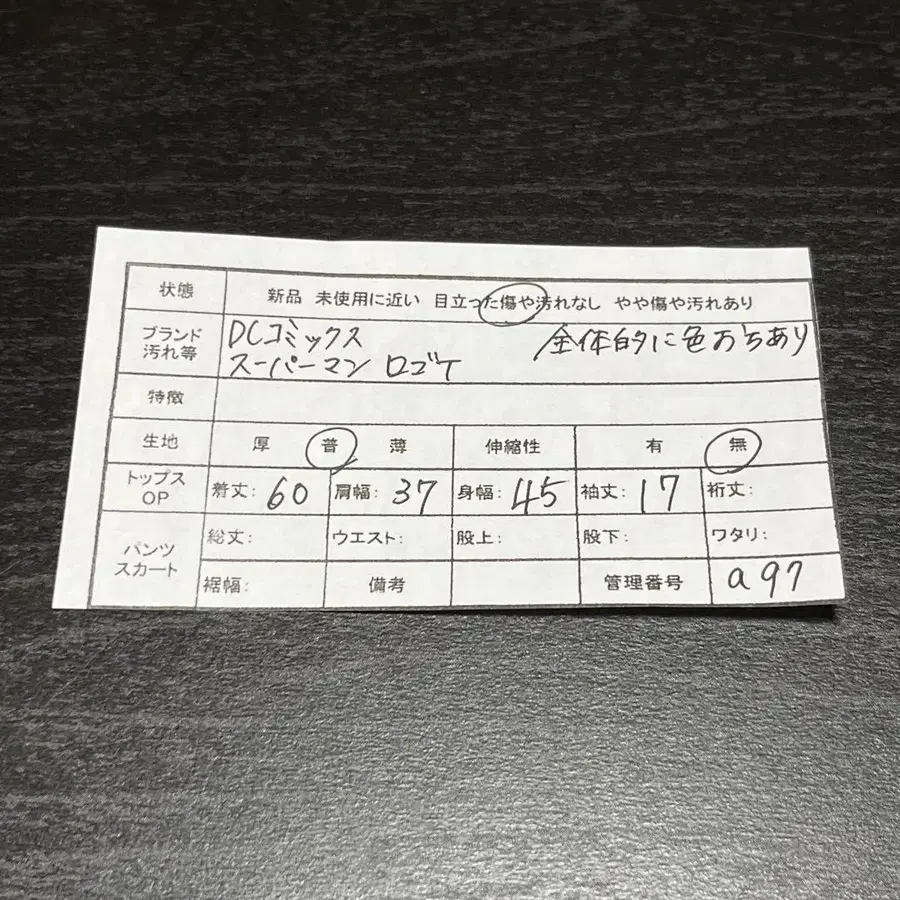 状態 新品 未使用に近い 目立った傷や汚れなし やや傷や汚れあり
ブランド 汚れ等 DCコミックス 全体的に色おちあり
スーパーマン ロゴT
特徴
生地 厚 普 薄 伸縮性 有 無
トップス OP 着丈: 60 肩幅: 37 身幅: 45 袖丈: 17 裄丈:
パンツ スカート 総丈: ウエスト: 股上: 股下: ワタリ:
裾幅: 備考 管理番号 a97